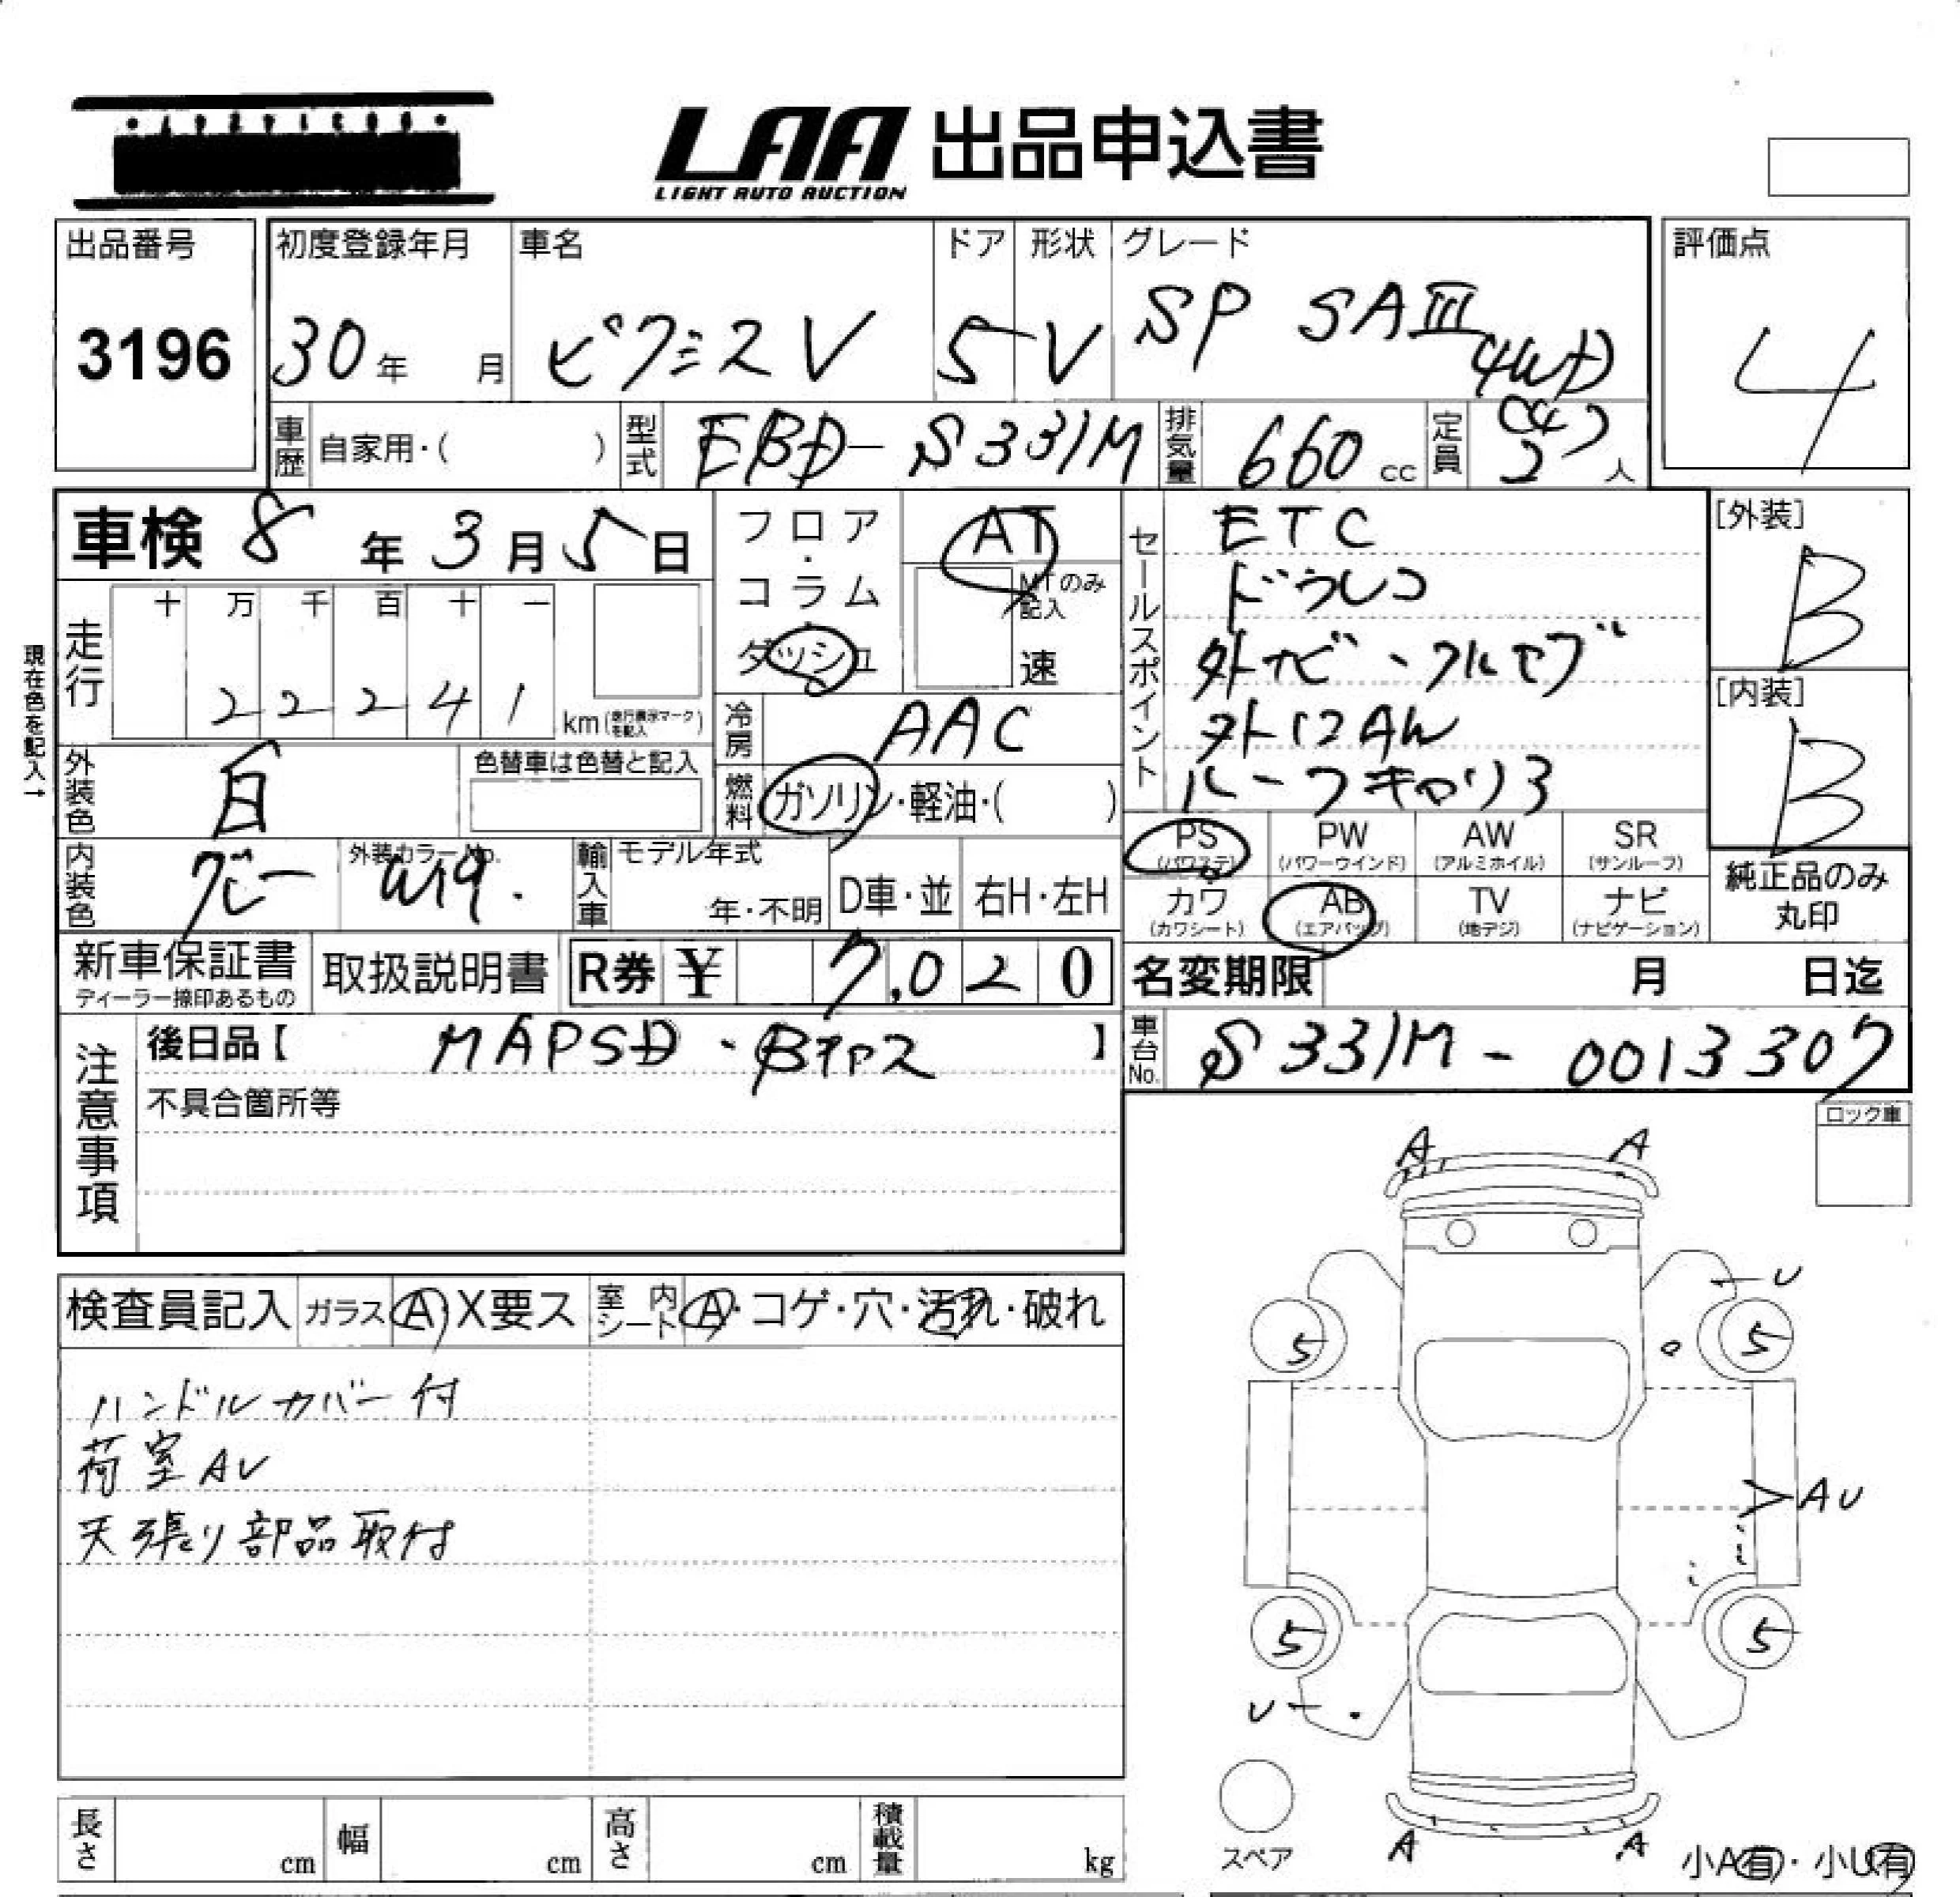 LAA 出品申込書
LIGHT AUTO AUCTION
出品番号 初度登録年月 車名 ドア 形状 グレード 評価点
3196 30年 月 ピクシスV 5 V SP SAⅢ (4WD) 4
車歴 自家用・( ) 型式 EBD-S331M 排気量 660 cc 定員 2(4) 人
車検 8年 3月 5日
フロア・コラム・ダッシュ
AT
MTのみ記入
速
走行 十 万 千 百 十 一
22241 km (走行表示マークを記入)
現在色を記入↑
外装色 白 色替車は色替と記入
冷房 AAC
燃料 ガソリン・軽油・( )
内装色 グレー 外装カラーNo. W19.
輸入車 モデル年式 年・不明 D車・並 右H・左H
セールスポイント
ETC
ドラレコ
外ナビ・フルセグ
外12AW
ルーフキャリア
[外装] B
[内装] B
PS (パワステ) PW (パワーウインド) AW (アルミホイル) SR (サンルーフ)
カワ (カワシート) AB (エアバッグ) TV (地デジ) ナビ (ナビゲーション)
純正品のみ丸印
新車保証書 ディーラー捺印あるもの 取扱説明書 R券 ¥ 7,020
名変期限 月 日迄
注意事項
後日品【 MAPSD・Bナンス 】
車台No. S331M-0013307
不具合箇所等
ロック車
検査員記入 ガラス A・X要ス 室内シート A・コゲ・穴・汚れ・破れ
ハンドルカバー付
荷室AU
天張り部品取付
A A
U
5 5
AU
5 5
U
A A
スペア
小A有・小U有
長さ cm 幅 cm 高さ cm 積載量 kg